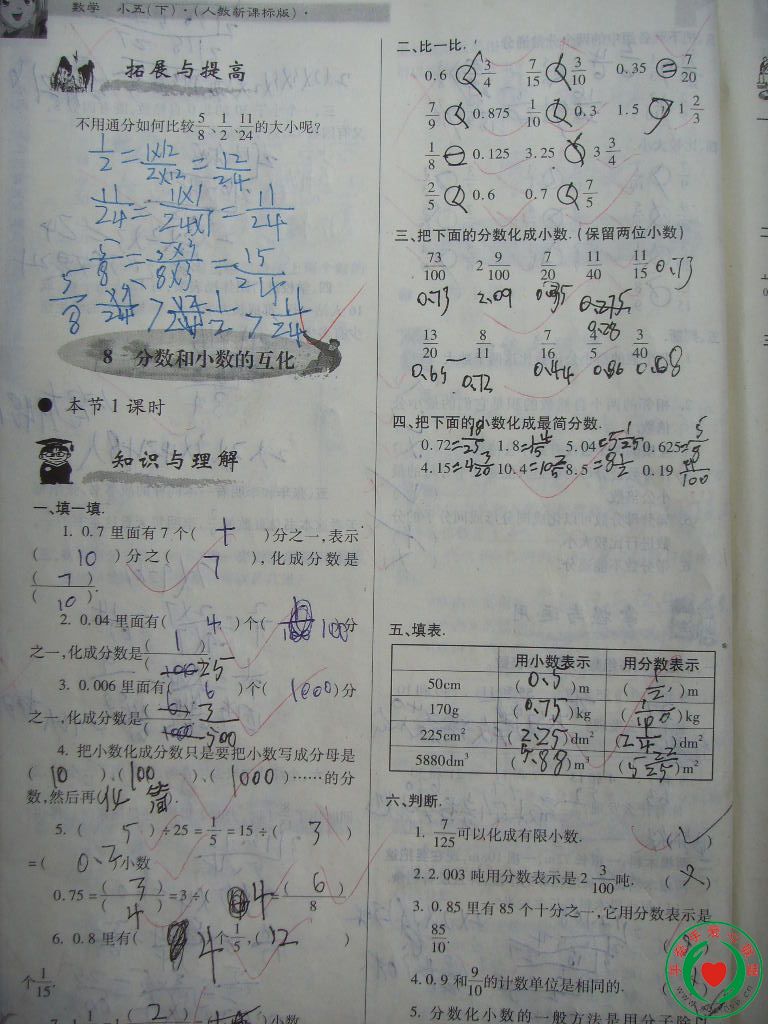 数学 小五(下)·(人教新课标版)·
拓展与提高
不用通分如何比较5/8、1/2、11/24的大小呢?
1/2=1×12/2×12=12/24
11/24=11×1/24×1=11/24
5/8=5×3/8×3=15/24
5/8 > 1/2 > 11/24
8 分数和小数的互化
● 本节1课时
知识与理解
一、填一填.
1. 0.7里面有7个( 十 )分之一,表示
( 10 )分之( 7 ),化成分数是
(7)/(10).
2. 0.04里面有( 4 )个( 100 )分
之一,化成分数是(1)/(25)
3. 0.006里面有( 6 )个( 1000 )分
之一,化成分数是3/500
4. 把小数化成分数只是要把小数写成分母是
( 10 )、( 100 )、( 1000 )……的分
数,然后再( ).
5. ( 5 )÷25=1/5=15÷( 3 )
=( )小数
0.75=(3)/(4)=3÷( 4 )=(6)/8
6. 0.8里有( 4 )个1/5,( 12 )
个1/15.
二、比一比.
0.6 < 3/4 7/15 > 3/10 0.35 = 7/20
7/9 < 0.875 1/10 < 0.3 1.5 1 2/3
1/8 = 0.125 3.25 < 3 3/4
2/5 < 0.6 0.7 < 7/5
三、把下面的分数化成小数.(保留两位小数)
73/100 2 9/100 7/20 11/40 11/15 0.73
0.73 2.09 0.35 0.275
0.28
13/20 8/11 7/16 4/5 3/40
0.65 0.73 0.44 0.8 0.08
四、把下面的小数化成最简分数.
0.72=18/25 1.8=1 4/5 5.04=5 1/25 0.625=5/8
4.15=4 3/20 10.4=10 2/5 8.5=8 1/2 0.19 19/100
五、填表.
用小数表示 用分数表示
50cm ( 0.5 )m ( 1/2 )m
170g ( )kg ( )kg
225cm² ( 2.25 )dm² ( 2 1/4 )dm²
5880dm³ ( 5.88 )m³ ( 5 22/25 )m²
六、判断.
1. 7/125可以化成有限小数. ( √ )
2. 2.003吨用分数表示是2 3/100吨. ( × )
3. 0.85里有85个十分之一,它用分数表示是
85/10. ( × )
4. 0.9和9/10的计数单位是相同的. ( × )
5. 分数化小数的一般方法是用分子除以